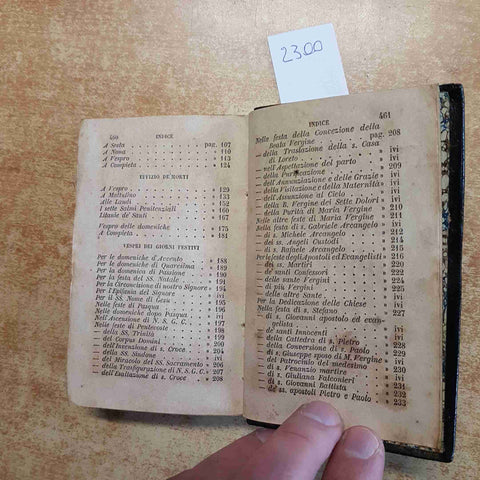 2300
460 INDICE
A Sesta pag. 107
A Nona 110
A Vespro 113
A Compieta 124
UFFIZIO DE MORTI
A Vespro 129
A Mattutino 132
Alle Laudi 155
I sette Salmi Penitenziali 160
Litanie de' Santi 167
Vespro delle domeniche 175
A Compieta 181
VESPRI DEI GIORNI FESTIVI
Per le domeniche d'Avvento 188
Per le domeniche di Quaresima 189
Per la domenica di Passione 190
Per la festa del SS. Natale 191
Per la Circoncisione di nostro Signore 193
Per l'Epifania del Signore
Per il SS. Nome di Gesù ivi
Nelle feste di Pasqua
Nelle domeniche dopo Pasqua
Nell'Ascensione di N. S. G. C.
Nelle feste di Pentecoste
— della SS. Trinità
— del Corpus Domini
— dell'Invenzione di s. Croce 204
— della SS. Sindone ivi
— del Miracolo del SS. Sacramento 206
— della Trasfigurazione di N. S. G. C. 207
— dell'Esaltazione di s. Croce 208
INDICE 461
Nelle festa della Concezione della
Beata Vergine pag. 208
— della Traslazione della s. Casa
di Loreto ivi
— nell'Aspettazione del parto ivi
— della Purificazione 209
— dell'Annunziazione e delle Grazie ivi
— della Visitazione e della Maternità ivi
— dell'Assunzione al Cielo ivi
— della B. Vergine dei Sette Dolori ivi
— della Purità di Maria Vergine 210
Nelle altre feste di Maria Vergine
Nella festa di s. Gabriele Arcangelo
— di s. Michele Arcangelo
— dei ss. Angeli Custodi
— di s. Rafaele Arcangelo
Per le feste degli Apostoli ed Evangelisti
— dei ss. Martiri
— di santi Confessori 222
— delle sante Vergini 225
— di più Vergini 224
— delle altre Sante ivi
Per la Dedicazione delle Chiese ivi
Nella festa di s. Stefano 227
— di s. Giovanni apostolo ed evan-
gelista
— de' santi Innocenti
— della Cattedra di s. Pietro
— della Conversione di s. Paolo
— di s. Giuseppe sposo di M. Vergine
— del Patrocinio del medesimo ivi
— di s. Venanzio martire ivi
— di s. Giuliana Falconieri
— di s. Giovanni Battista ivi
— de' ss. apostoli Pietro e Paolo 233